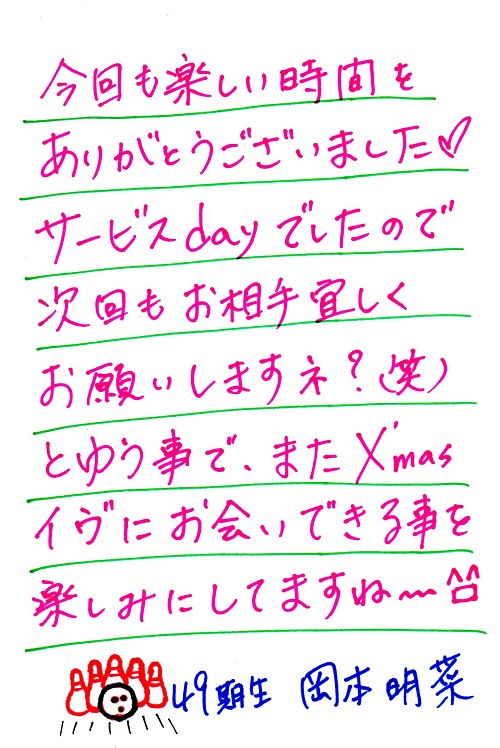 今回も楽しい時間を
ありがとうございました♡
サービスdayでしたので
次回もお相手宜しく
お願いしますネ?(笑)
とゆう事で、またX'mas
イヴにお会いできる事を
楽しみにしてますね〜^^
49期生 岡本明菜